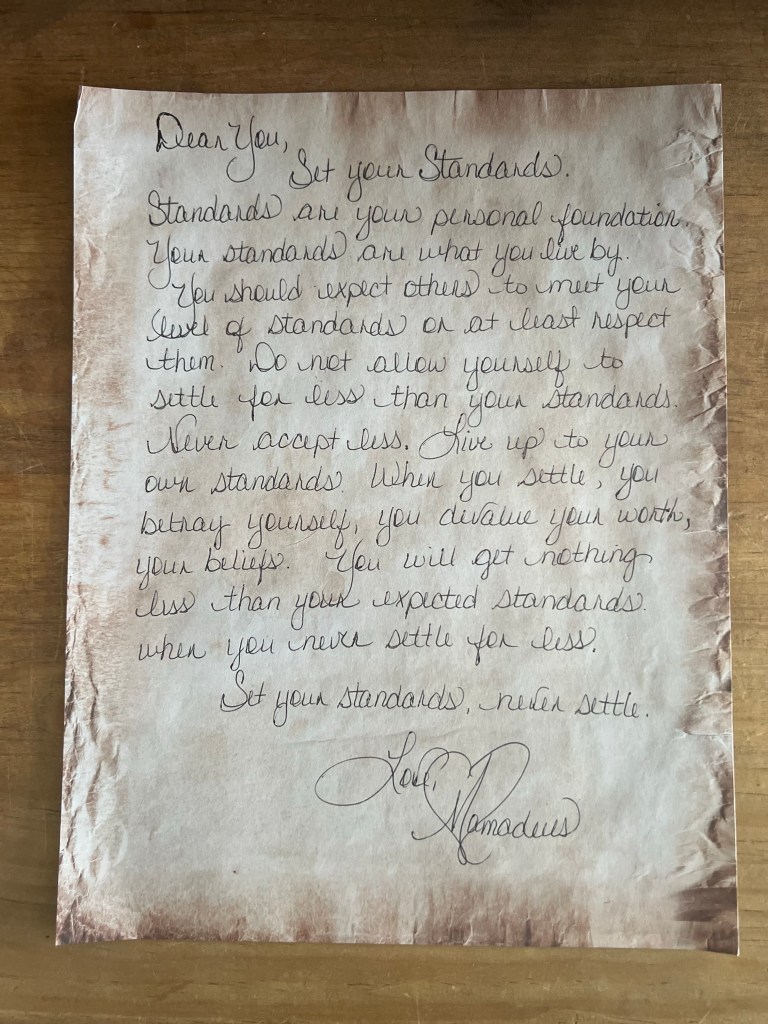 Dear You,
Set your Standards.
Standards are your personal foundation.
Your standards are what you live by.
You should expect others to meet your
level of standards or at least respect
them. Do not allow yourself to
settle for less than your standards.
Never accept less. Live up to your
own standards. When you settle, you
betray yourself, you devalue your worth,
your beliefs. You will get nothing
less than your expected standards.
when you never settle for less.
Set your standards, never settle.
Love,
Mamadeus